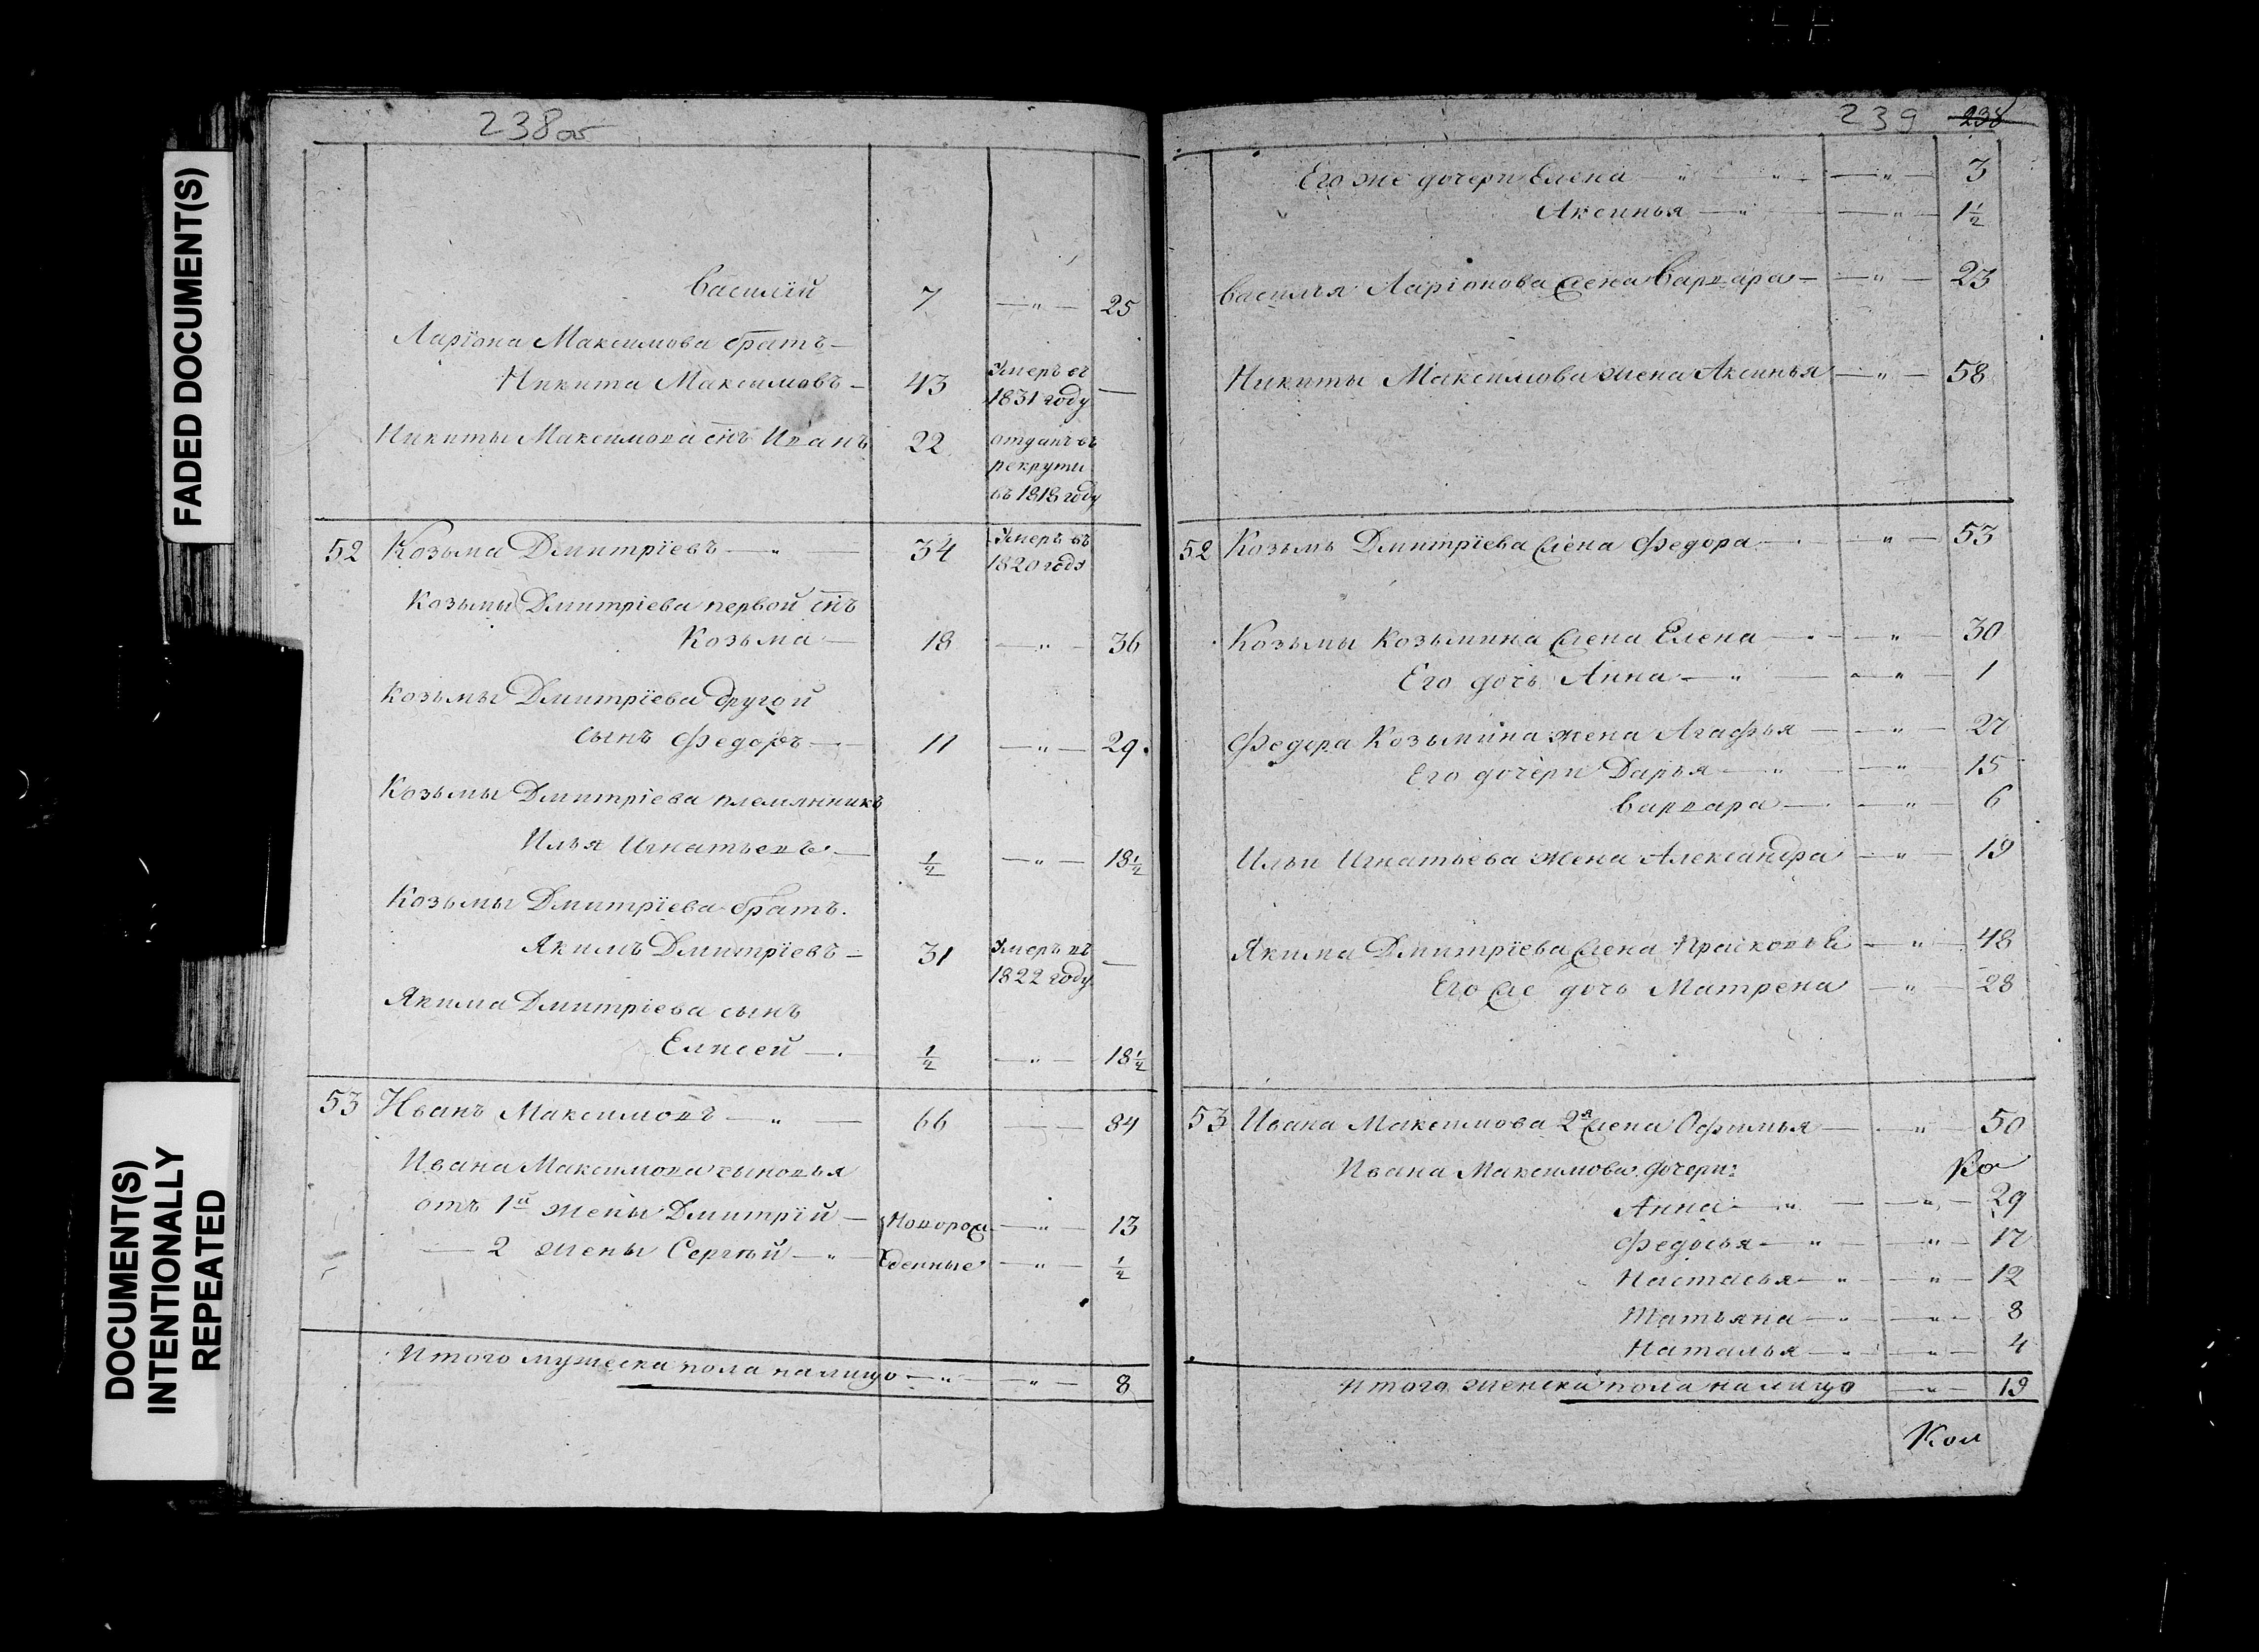 FADED DOCUMENT(S)
DOCUMENT(S)
INTENTIONALLY
REPEATED
238 об
Василий 7 — " — 25
Ларіона Максимова братъ —
Никита Максимовъ — 43 Умеръ въ 1831 году —
Никиты Максимова сн̃ъ Иванъ 22 отданъ въ рекруты въ 1818 году
52 Козьма Дмитріевъ — " — 34 Умеръ въ 1820 году
Козьмы Дмитріева первой сн̃ъ
Козьма — 18 — " — 36
Козьмы Дмитріева другой
сынъ Федоръ — 11 — " — 29.
Козьмы Дмитріева племянникъ
Илья Игнатьевъ — ½ — " — 18½
Козьмы Дмитріева братъ.
Якимъ Дмитріевъ — 31 Умеръ въ 1822 году —
Якима Дмитріева сынъ
Елисей — ½ — " — 18½
53 Иванъ Максимовъ — " — 66 — " — 84
Ивана Максимова сыновья
отъ 1й жены Дмитрій —Ioворож — " — 13
— 2 жены Сергѣй — " — денные — " — ½
Итого мужеска пола налицо — " — " — 8
239 238
Его же дочери Елена — " — " — " — 3
Аксинья — " — " — 1½
Василья Ларіонова жена Варвара — " — 23
Никиты Максимова жена Аксинья — " — 58
52 Козьмы Дмитріева жена Федора — " — 53
Козьмы Козьмина жена Елена — " — 30
Его дочь Анна — " — " — 1
Федора Козьмина жена Агафья — " — 27
Его дочери Дарья — " — " — 15
Варвара — " — 6
Ильи Игнатьева жена Александра — " — 19
Якима Дмитріева жена Прасковья — " — 48
Его же дочь Матрена — " — 28
53 Ивана Максимова 2я жена Офимья — " — 50
Ивана Максимова дочери:
Анна — " — " — 29
Федосья — " — " — 17
Настасья — " — " — 12
Татьяна — " — " — 8
Наталья — " — " — 4
Итого женска пола налицо — " — 19